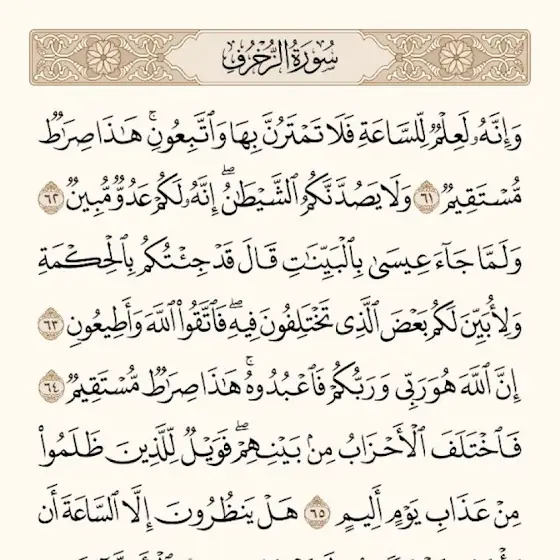 سُورَةُ الزُّخْرُفِ
وَإِنَّهُۥ لَعِلْمٌ لِّلسَّاعَةِ فَلَا تَمْتَرُنَّ بِهَا وَٱتَّبِعُونِۚ هَـٰذَا صِرَٰطٌ
مُّسْتَقِيمٌ ٦١ وَلَا يَصُدَّنَّكُمُ ٱلشَّيْطَـٰنُۖ إِنَّهُۥ لَكُمْ عَدُوٌّ مُّبِينٌ ٦٢
وَلَمَّا جَآءَ عِيسَىٰ بِٱلْبَيِّنَـٰتِ قَالَ قَدْ جِئْتُكُم بِٱلْحِكْمَةِ
وَلِأُبَيِّنَ لَكُم بَعْضَ ٱلَّذِى تَخْتَلِفُونَ فِيهِۖ فَٱتَّقُوا۟ ٱللَّهَ وَأَطِيعُونِ ٦٣
إِنَّ ٱللَّهَ هُوَ رَبِّى وَرَبُّكُمْ فَٱعْبُدُوهُۚ هَـٰذَا صِرَٰطٌ مُّسْتَقِيمٌ ٦٤
فَٱخْتَلَفَ ٱلْأَحْزَابُ مِنۢ بَيْنِهِمْۖ فَوَيْلٌ لِّلَّذِينَ ظَلَمُوا۟
مِنْ عَذَابِ يَوْمٍ أَلِيمٍ ٦٥ هَلْ يَنظُرُونَ إِلَّا ٱلسَّاعَةَ أَن